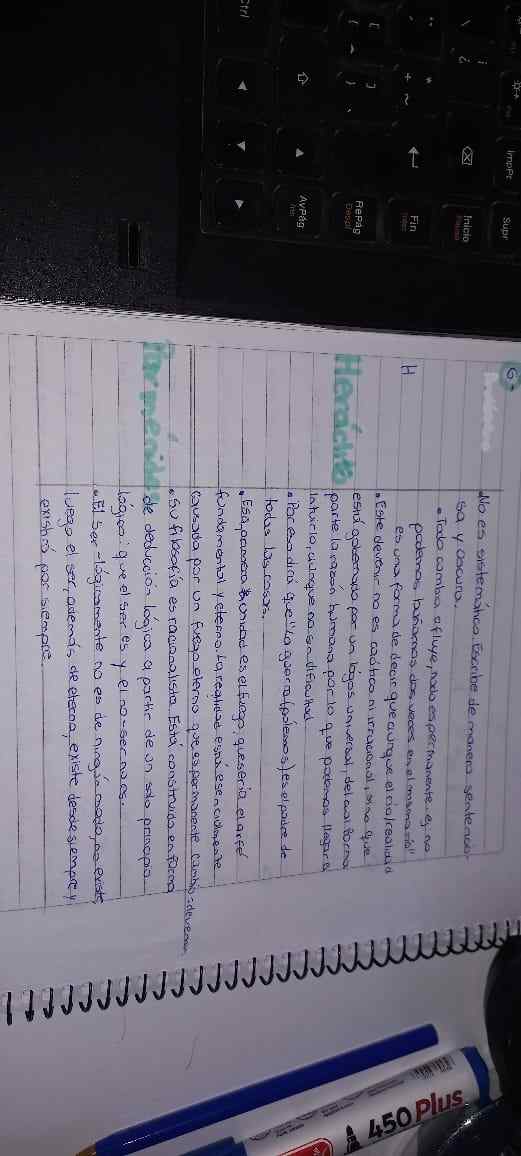 Supr
ImpPt
Inicio
Pausa
Fin
RePág
Despl
AvPág
Ctrl
6.
No es sistemático. Escribe de manera sentencio-
sa y oscura.
• Todo cambia o fluye, nada es permanente. ej. no
podemos bañarnos dos veces en el mismo río"
H es una forma de decir que aunque el río/realidad
• Este devenir no es caótico ni irracional, sino que
está gobernado por un logos universal, del cual forma
Heráclito parte la razón humana por lo que podemos llegar a
intuirlo, aunque no sin dificultad
• Por eso dirá que "La guerra (pólemos) es el padre de
todas las cosas.
• Esa primera unidad es el fuego, que sería el arjé
fundamental y eterno. La realidad está esencialmente
causada por un fuego eterno que es permanente cambio: devenir
• Su filosofía es racionalista. Está construida en forma
Parménides de deducción lógica a partir de un solo principio
lógico: que el ser es y el no-ser no es.
• El Ser-lógicamente no es de ningún modo, no existe,
luego el ser, además de eterno, existe desde siempre y
existirá por siempre
450 Plus